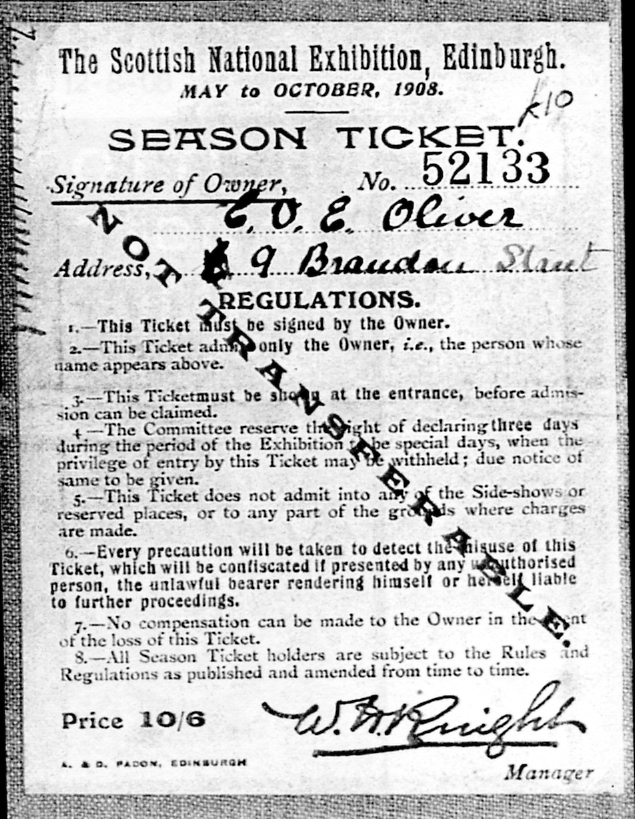 The Scottish National Exhibition, Edinburgh.
MAY to OCTOBER, 1908.
k10
SEASON TICKET.
Signature of Owner, No. 52133
C. O. E. Oliver
Address, 9 Brandon Street
REGULATIONS.
1.—This Ticket must be signed by the Owner.
2.—This Ticket admits only the Owner, i.e., the person whose
name appears above.
3.—This Ticket must be shown at the entrance, before admis-
sion can be claimed.
4—The Committee reserve the right of declaring three days
during the period of the Exhibition to be special days, when the
privilege of entry by this Ticket may be withheld; due notice of
same to be given.
5.—This Ticket does not admit into any of the Side-shows or
reserved places, or to any part of the grounds where charges
are made.
6.—Every precaution will be taken to detect the misuse of this
Ticket, which will be confiscated if presented by any unauthorised
person, the unlawful bearer rendering himself or herself liable
to further proceedings.
7.—No compensation can be made to the Owner in the event
of the loss of this Ticket.
8.—All Season Ticket holders are subject to the Rules and
Regulations as published and amended from time to time.
NOT TRANSFERABLE.
Price 10/6
W. H. Knight
A. & D. PADON, EDINBURGH
Manager